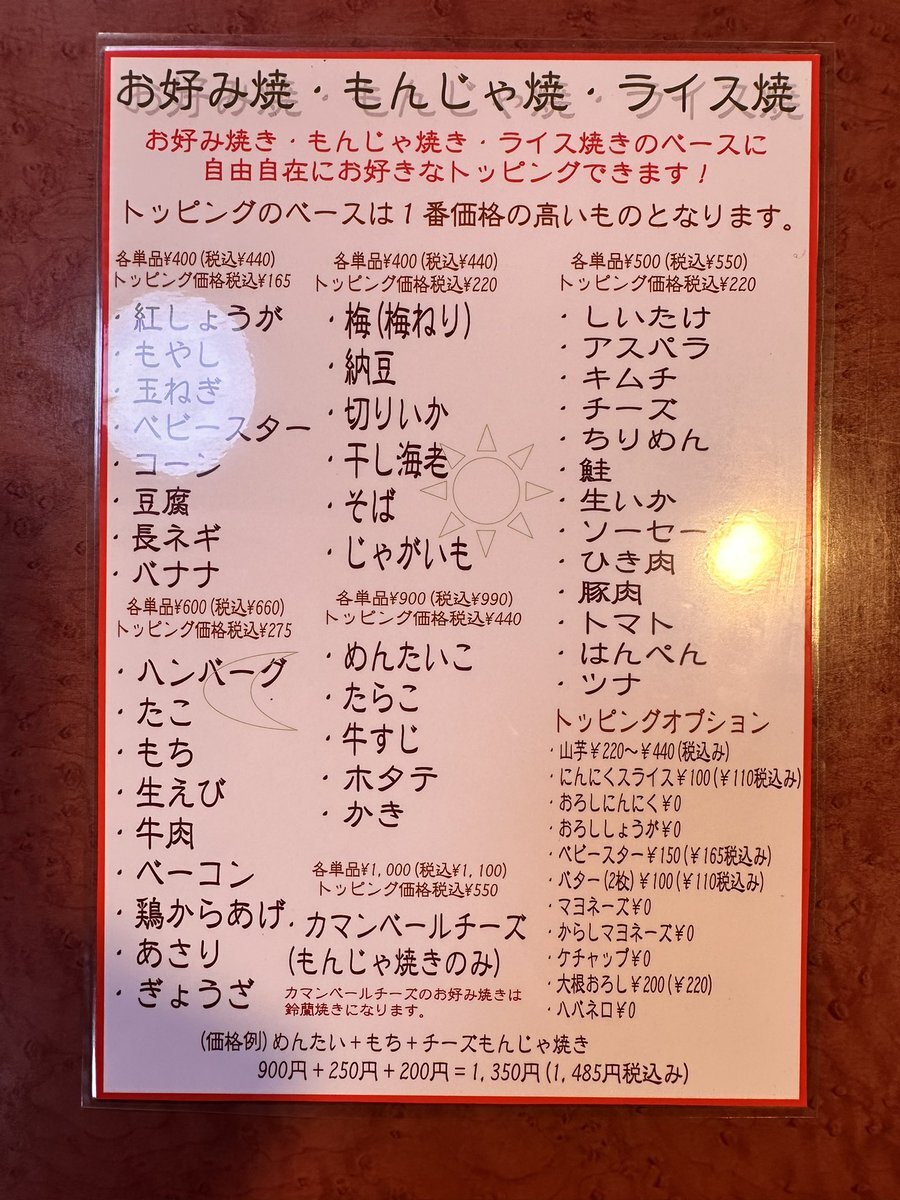 お好み焼・もんじゃ焼・ライス焼
お好み焼き・もんじゃ焼き・ライス焼きのベースに
自由自在にお好きなトッピングできます！
トッピングのベースは１番価格の高いものとなります。
各単品¥400(税込¥440)
トッピング価格税込¥165
・紅しょうが
・もやし
・玉ねぎ
・ベビースター
・コーン
・豆腐
・長ネギ
・バナナ
各単品¥600(税込¥660)
トッピング価格税込¥275
・ハンバーグ
・たこ
・もち
・生えび
・牛肉
・ベーコン
・鶏からあげ
・あさり
・ぎょうざ
各単品¥400(税込¥440)
トッピング価格税込¥220
・梅(梅ねり)
・納豆
・切りいか
・干し海老
・そば
・じゃがいも
各単品¥900(税込¥990)
トッピング価格税込¥440
・めんたいこ
・たらこ
・牛すじ
・ホタテ
・かき
各単品¥1,000(税込¥1,100)
トッピング価格税込¥550
・カマンベールチーズ
(もんじゃ焼きのみ)
カマンベールチーズのお好み焼きは
鈴蘭焼きになります。
各単品¥500(税込¥550)
トッピング価格税込¥220
・しいたけ
・アスパラ
・キムチ
・チーズ
・ちりめん
・鮭
・生いか
・ソーセージ
・ひき肉
・豚肉
・トマト
・はんぺん
・ツナ
トッピングオプション
・山芋￥220～￥440(税込み)
・にんにくスライス￥100(￥110税込み)
・おろしにんにく￥0
・おろししょうが￥0
・ベビースター￥150(￥165税込み)
・バター(2枚)￥100(￥110税込み)
・マヨネーズ￥0
・からしマヨネーズ￥0
・ケチャップ￥0
・大根おろし￥200(￥220)
・ハバネロ￥0
(価格例)めんたい＋もち＋チーズもんじゃ焼き
900円＋250円＋200円＝1,350円(1,485円税込み)